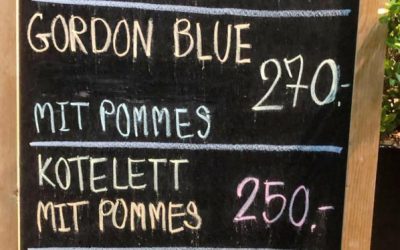 GORDON BLUE
270.-
MIT POMMES
KOTELETT
MIT POMMES 250.-